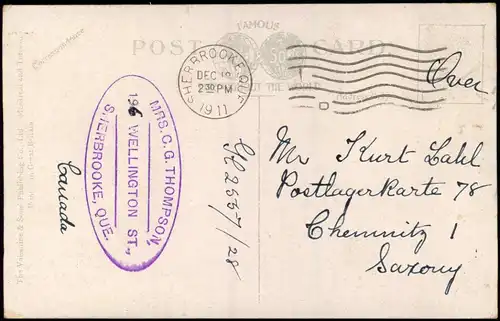 FAMOUS
POST CARD
Correspondence
SHERBROOKE, QUE
DEC 18
2 30 PM
1911
D
Over
MRS. C. G. THOMPSON,
196 WELLINGTON ST.,
SHERBROOKE, QUE.
Canada
Mr Kurt Lahl
Postlagerkarte 78
Chemnitz 1
Saxony
The Valentine & Sons' Publishing Co., Ltd. Montreal and
Printed in Great Britain